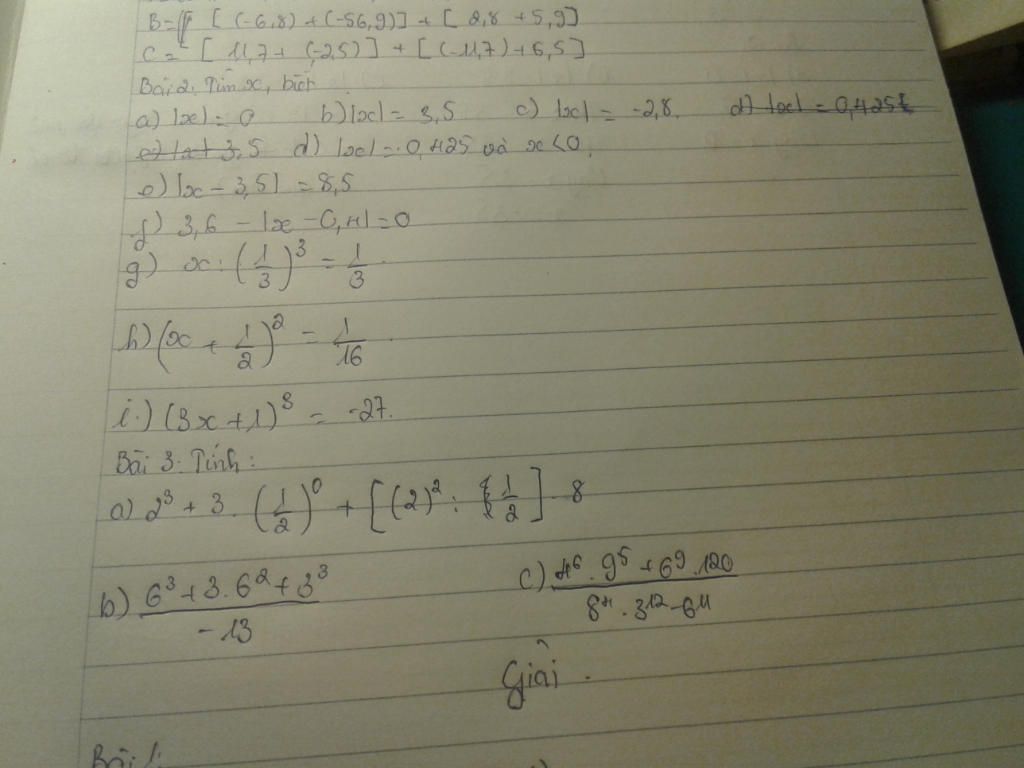 B = [ [ (-6,8) + (-56,9)] + [ 2,8 + 5,9]
C = [ 11,7 + (-2,5) ] + [ (-11,7) + 5,5 ]
Bài 2. Tìm x, biết
a) |x| = 0 b) |x| = 3,5 c) |x| = -2,8. d) |x| = 0,425
e) |x| 3,5 d) |x| = 0,425 và x < 0.
e) |x - 3,5| = 8,5
f) 3,6 - |x - 0,4| = 0
g) x : (1/3)^3 = 1/3.
h) (x + 1/2)^2 = 1/16.
i.) (3x + 1)^3 = -27.
Bài 3. Tính:
a) 2^3 + 3 . (1/2)^0 + [(2)^2 : 1/2] . 8
b) (6^3 + 3.6^2 + 3^3)/(-13) c) (4^6 . 9^5 + 6^9 . 120)/(8^4 . 3^12 - 6^11)
Giải.
Bài 1: